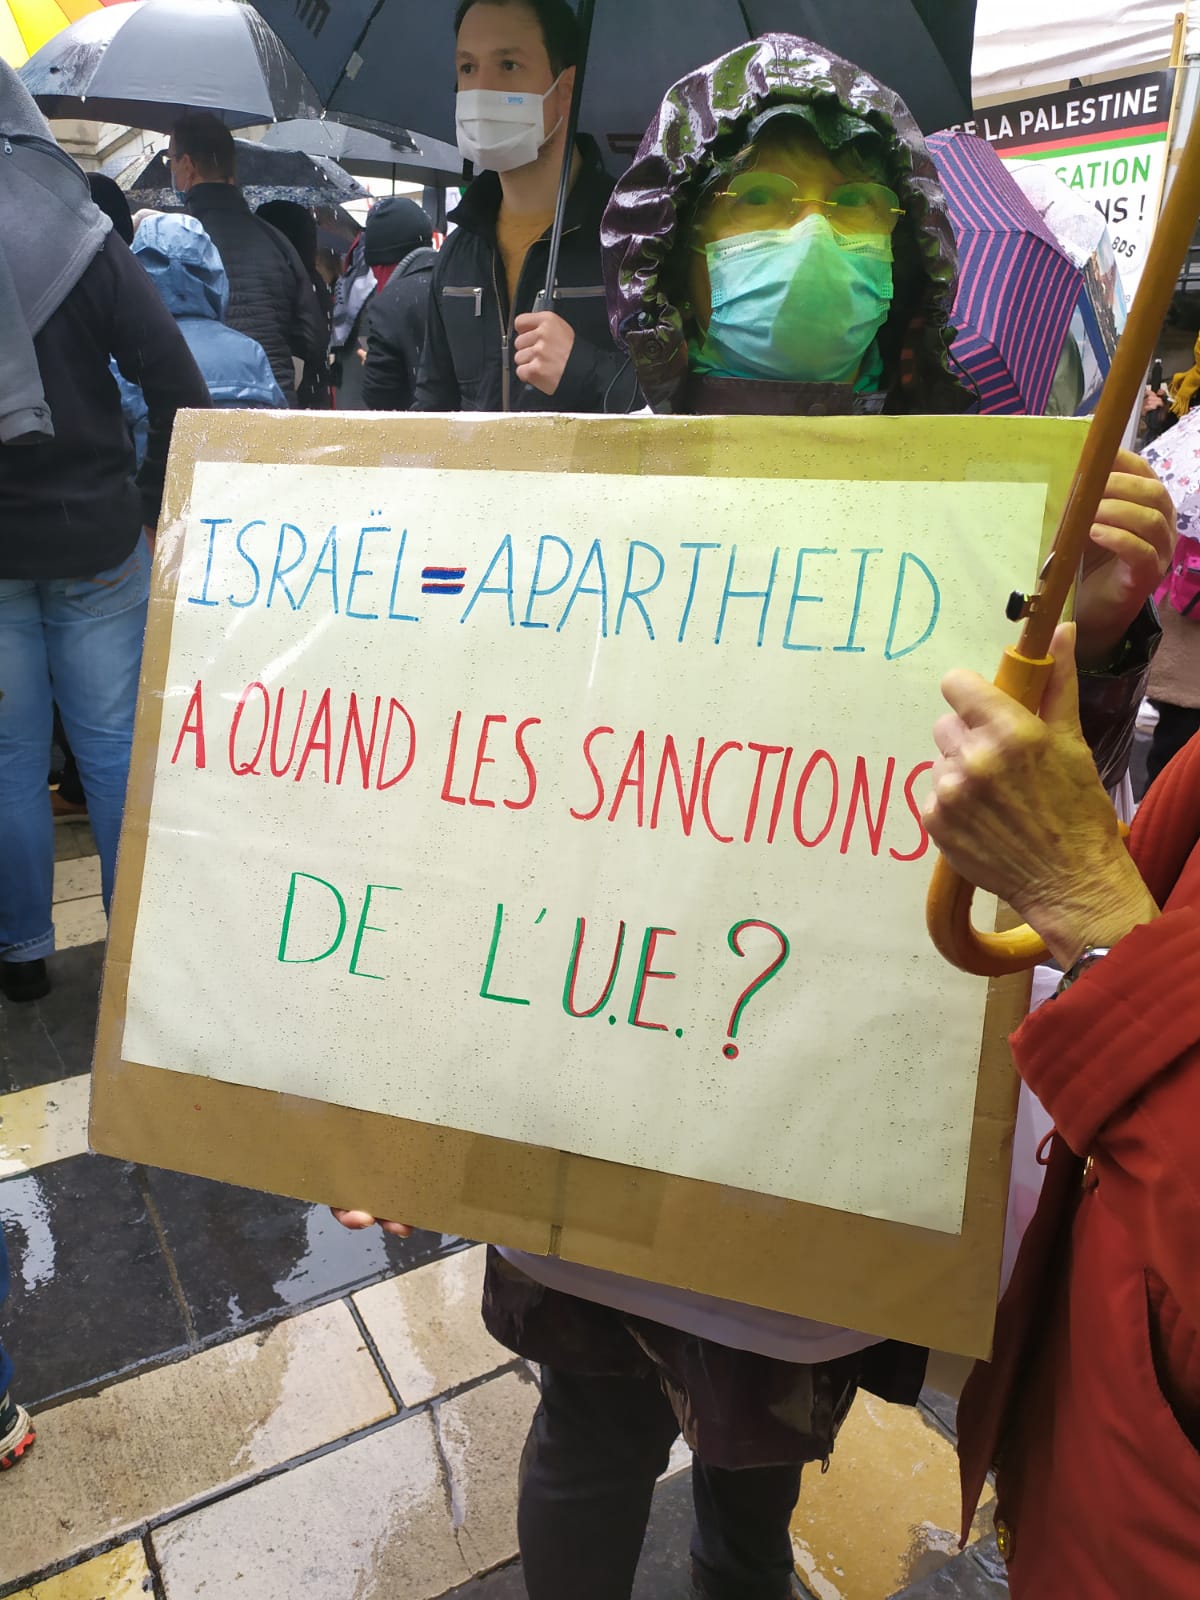 SE LA PALESTINE
SATION
NS !
BDS
ISRAËL=APARTHEID
A QUAND LES SANCTIONS
DE L'U.E.?